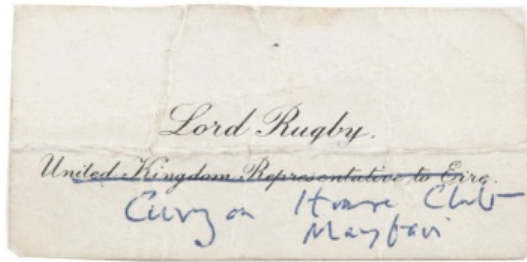 Lord Rugby.
United Kingdom Representative to Eire.
Curzon House Club
Mayfair